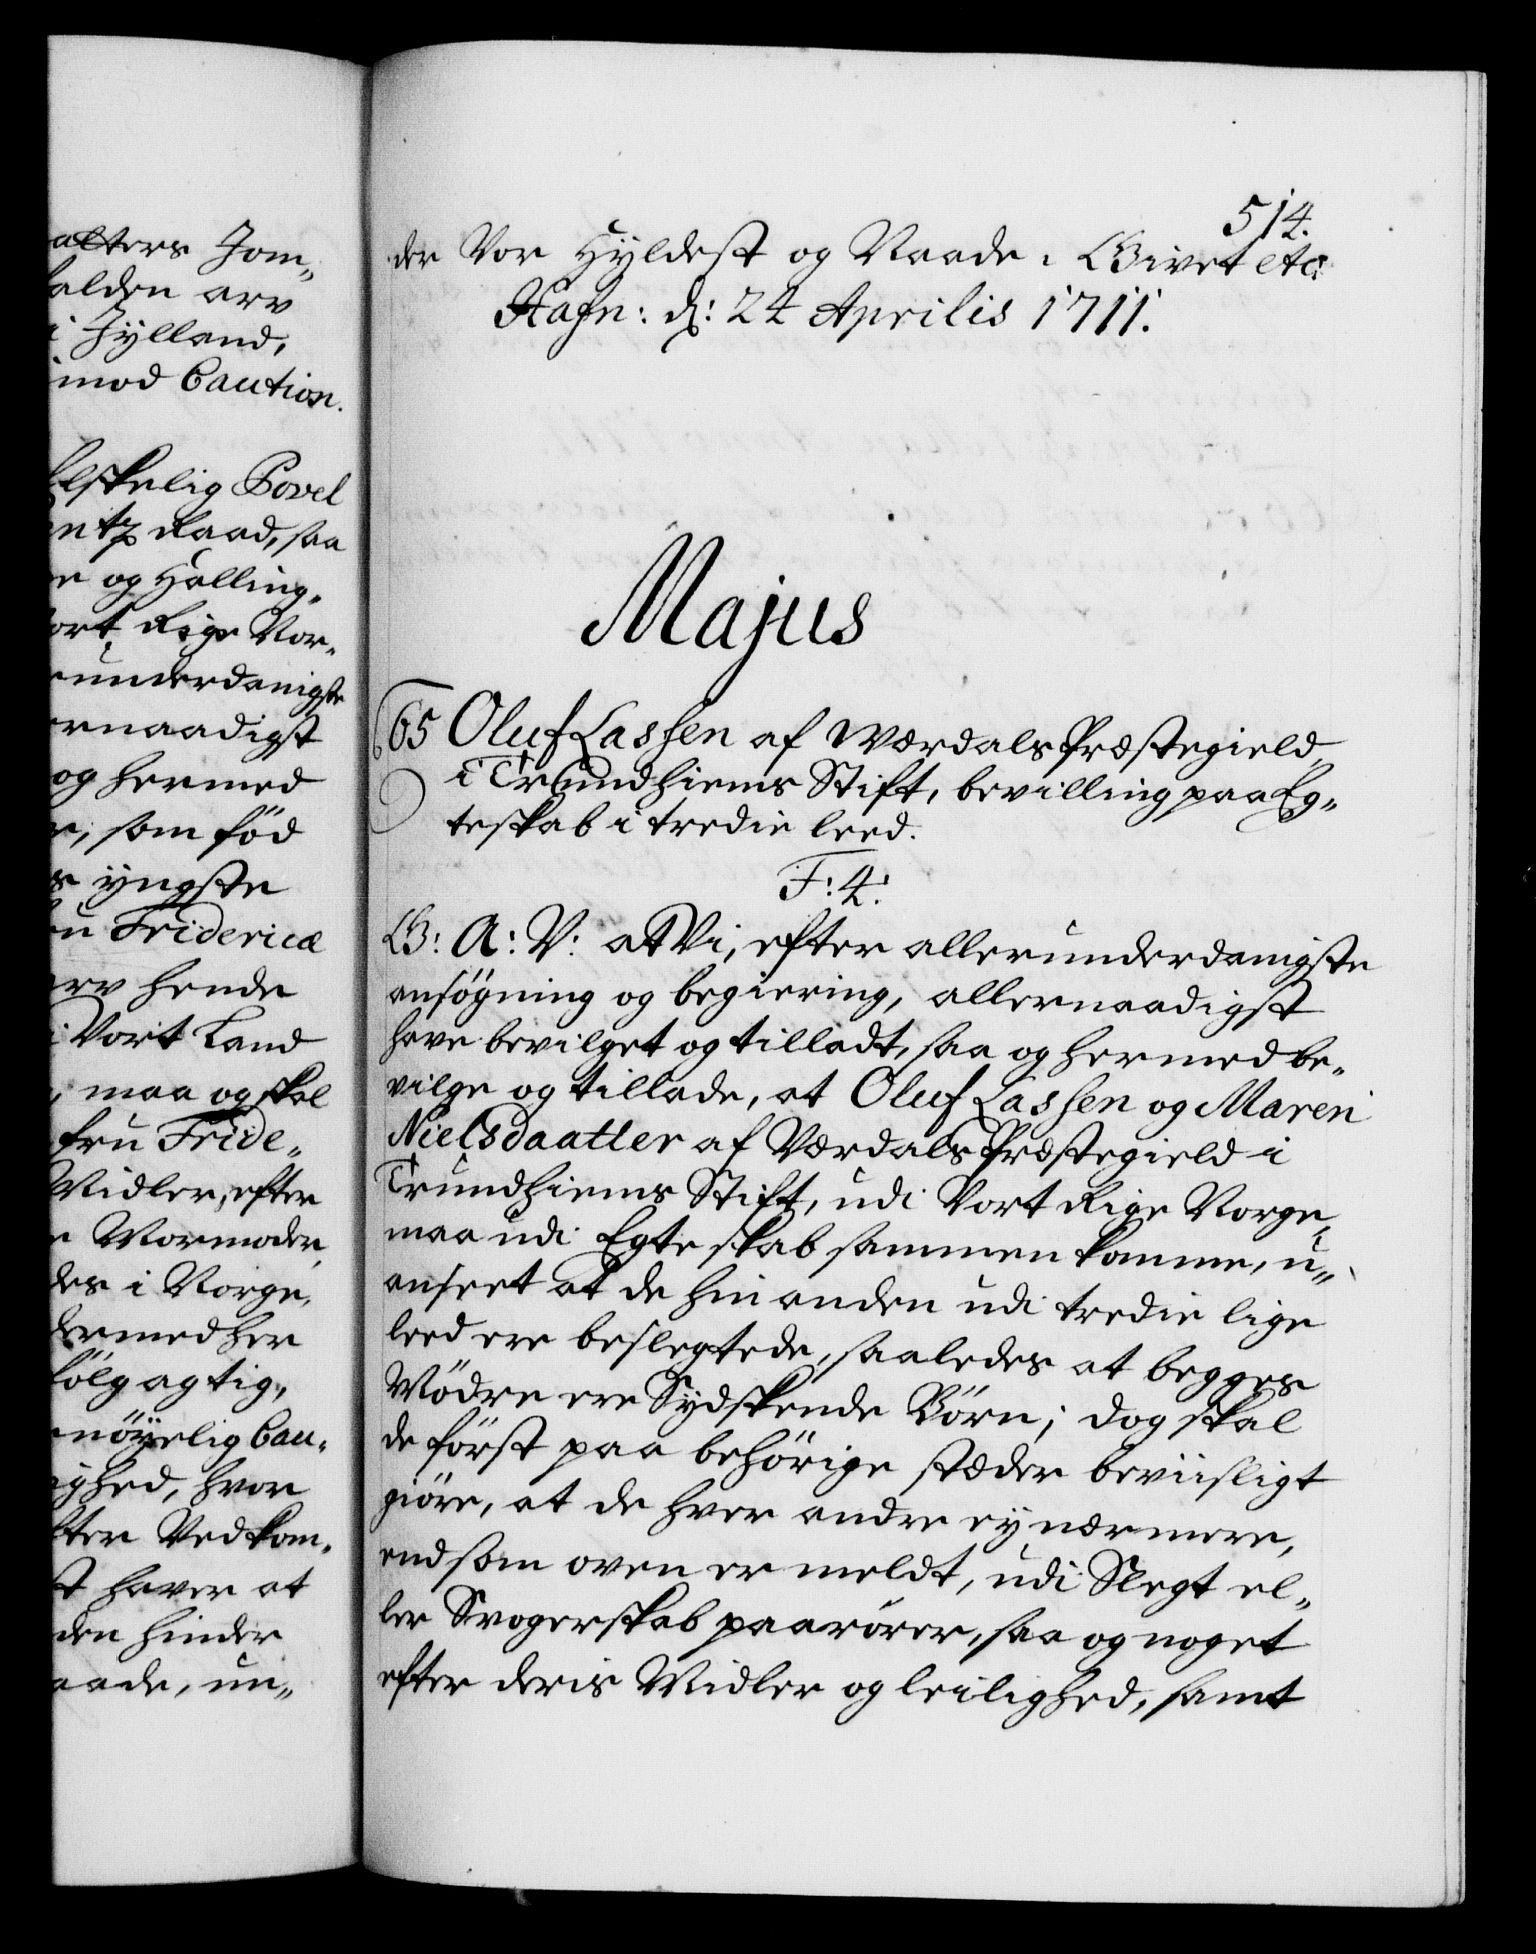 alters Jom„
falden arv
i Jylland,
imod Caution.
Elskelig Povel
entz Raad, saa
re og Halling„
ort Rige Nor„
runderdanigste
rnaadigst
og hermed
r, som fød
s yngste
ru Fridericæ
arv hende
i Vort Land
, maa og skal
fru Fride„
Midler, efter
e Mormoder,
des i Norge,
dermed her
følgagtig,
nöyelig Cau„
ighed, hvor
fter Vedkom„
st haver at
den hinder
aade, un„
514.
der Vor Hyldest og Naade. Givet etc.
Hafn: d: 24 Aprilis 1711.
Majus
65 Oluf Lassen af Værdals Præstegield
i Trundhiems Stift, bevilling paa Eg„
teskab i tredie leed.
F: 4.
G: A: V: at Vi, efter allerunderdanigste
ansøgning og begiering, allernaadigst
have bevilget og tilladt, saa og hermed be„
vilge og tillade, at Oluf Lassen og Maren
Nielsdaatter af Værdals Præstegield i
Trundhiems Stift, udi Vort Rige Norge,
maa udi Egteskab sammen komme, u„
anseet at de hinanden udi tredie lige
leed ere beslegtede, saaledes at begges
Mödre ere Sydskende Börn; dog skal
de först paa behörige stæder beviisligt
giöre, at de hver andre ey nærmere,
end som oven er meldt, udi Slegt el„
ler Svogerskab paarörer, saa og noget
efter deris Midler og leilighed, samt